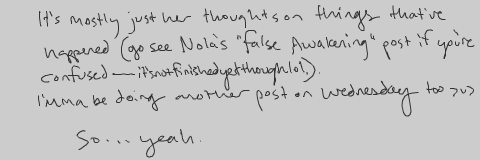 It's mostly just her thoughts on things that've
happened (go see Nola's "False Awakening" post if you're
confused—it'snotfinishedyetthoughlol,).
I'mma be doing another post on Wednesday too >v>
So... yeah.